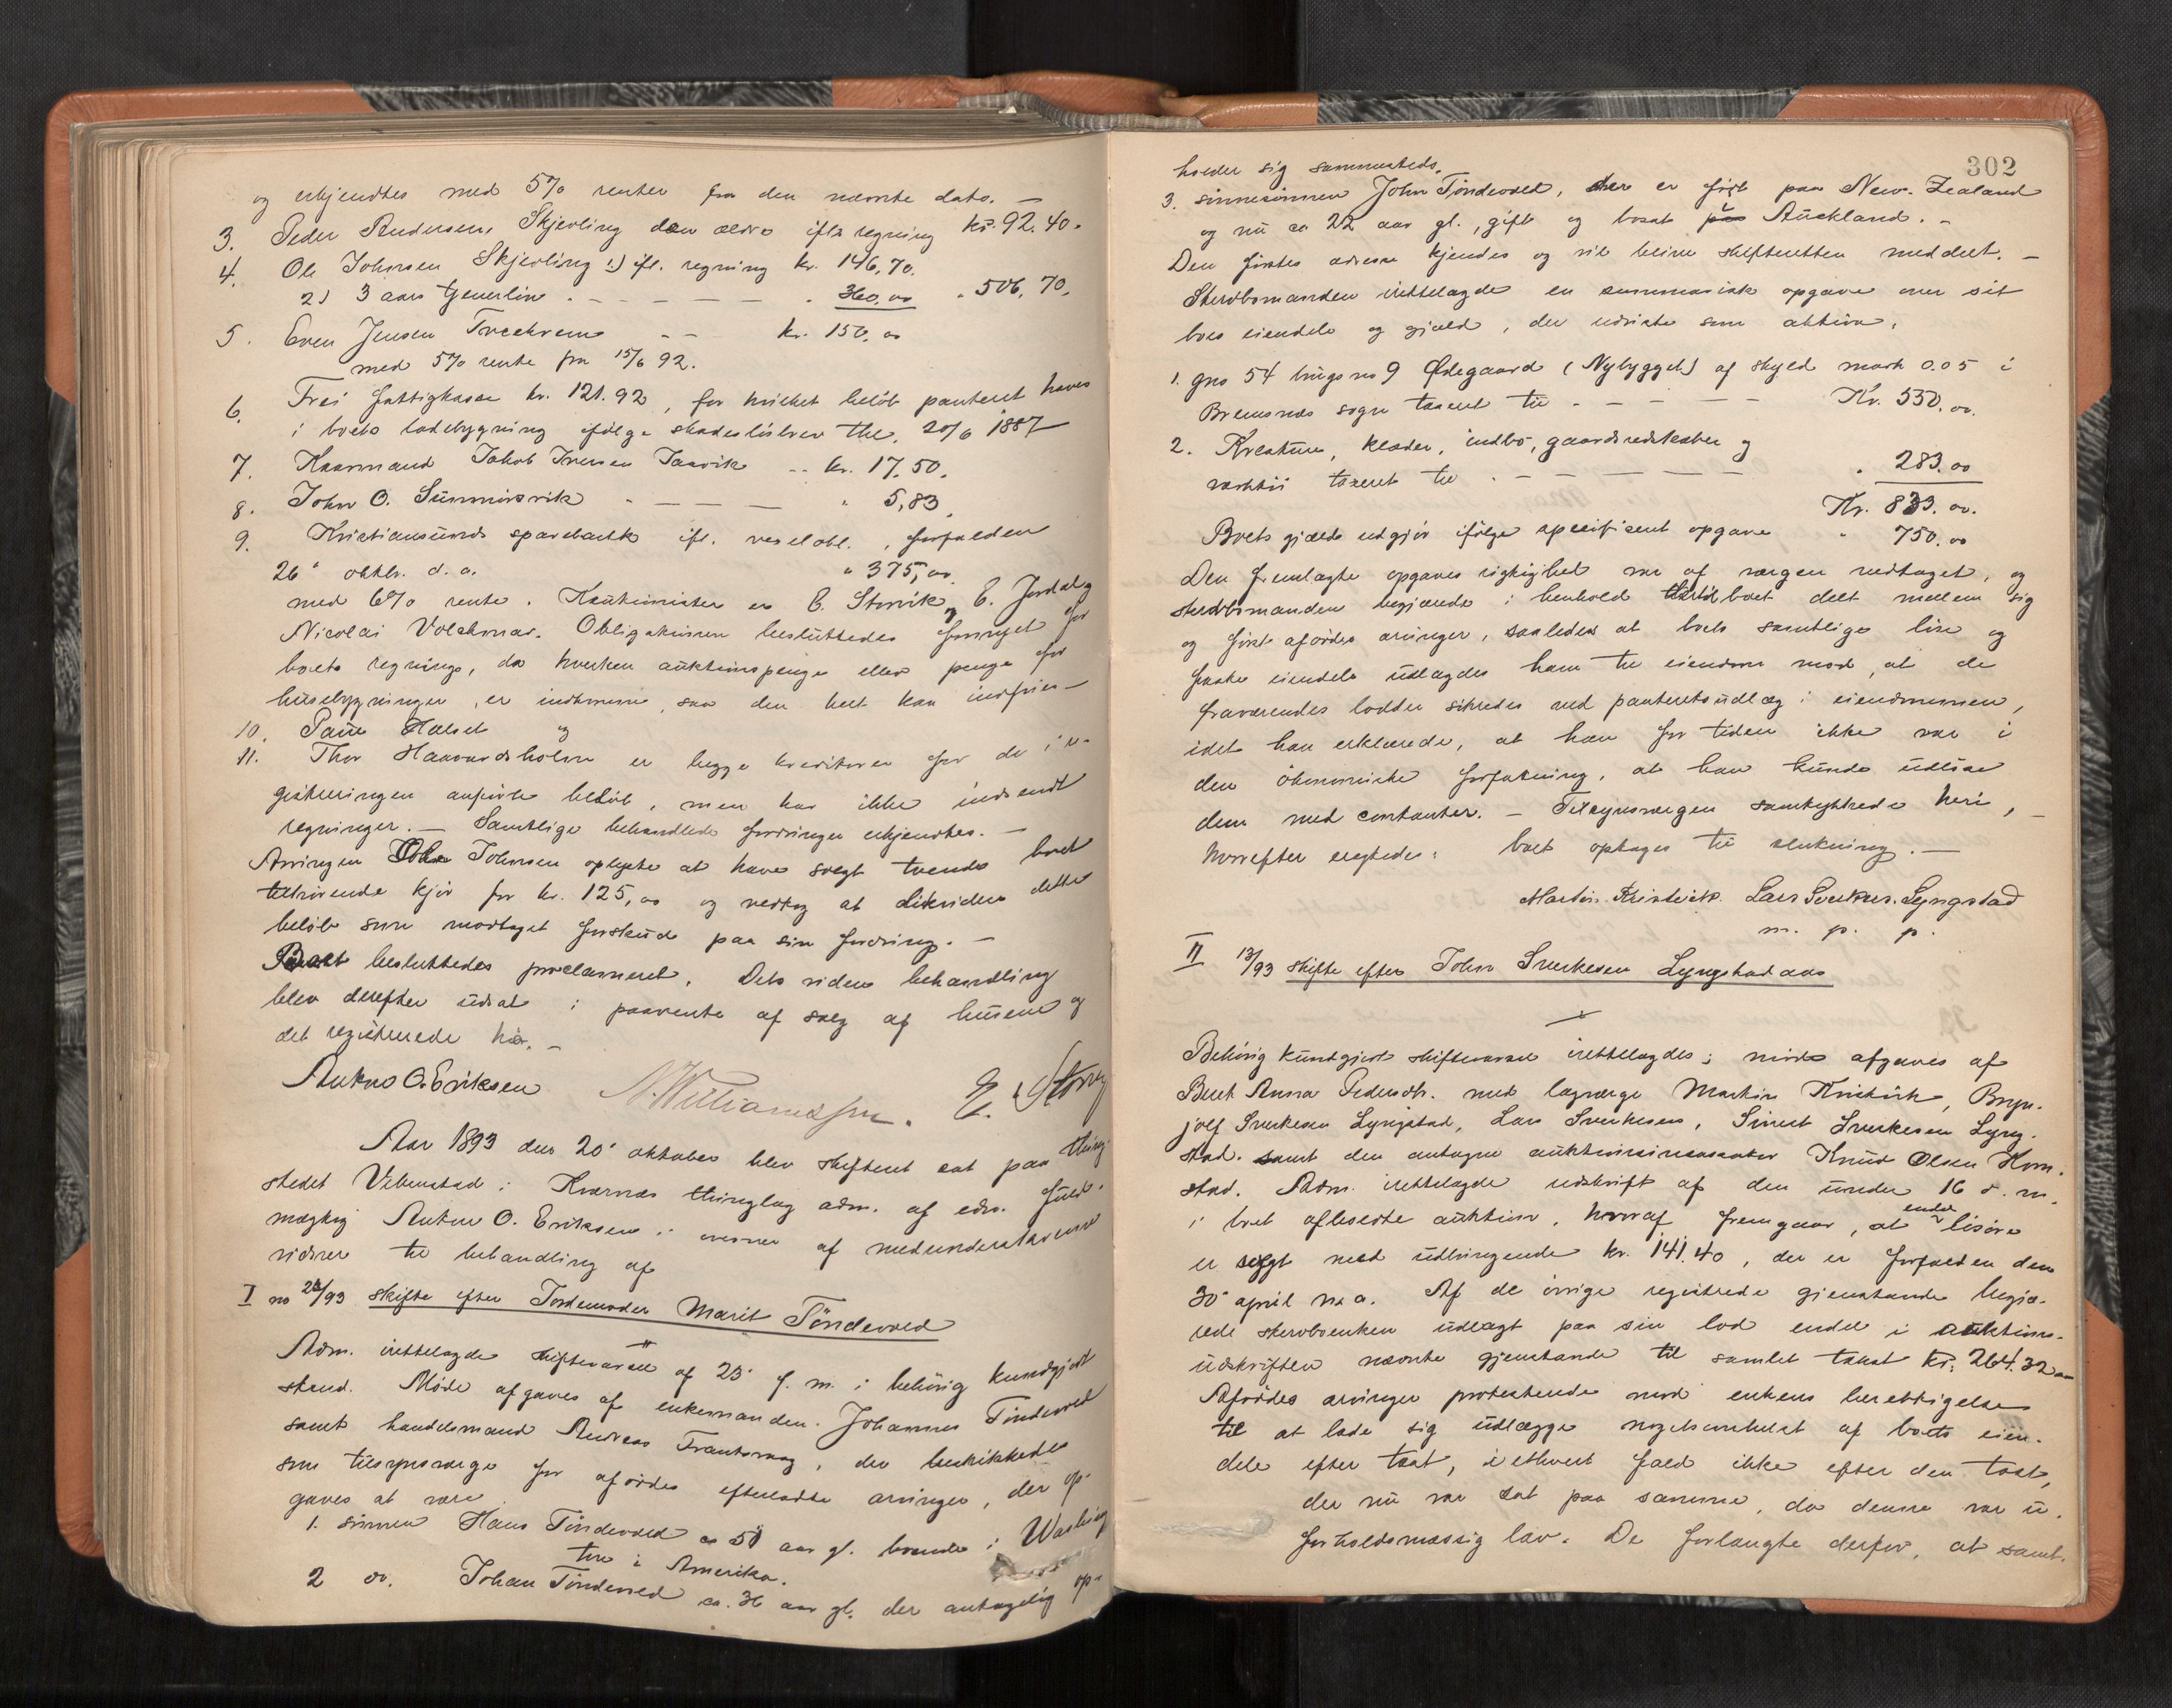 og erkjendtes med 5% renter fra den nævnte dato. —
3. Peder Andersen Skjevling den ældre ifl. regning kr. 92.40.
4. Ole Johnsen Skjevling 1) ifl. regning kr. 146,70.
2) 3 aars tjenerløn . — — — — . 360.00 . 506,70.
5. Even Jensen — — kr. 150,00
med 5% rente fra 15/6 92.
6. Frei fattigkasse kr. 121.92, for hvilket beløb panteret haves
i boets ladebygning ifølge skadesløsbrev thl. 20/6 1887
7. Kaarmand Jakob Iversen -- kr. 17,50.
8. John O. — — — " 5,83.
9. Kristiansunds sparebank ifl. vexelobl., forfalden
26' oktbr. d. a. " 375,00.
med 6% rente. Kautionister er E. Storvik, E. og
Nicolai Volckmar. Obligationen besluttedes fornyet for
boets regning, da hverken auktionspenge eller penge for
husebygninger er indkomne, saa den helt kan indfries —
10. Paul Halset og
11. Thor Haavardsholm er begge kreditorer for de i re-
gistreringen anførte beløb, men har ikke indsendt
regninger. — Samtlige behandlede fordringer erkjendtes. —
Arvingen Ole Johnsen oplyste at have solgt tvende boet
tilhørende kjør for kr. 125,00 og vedtog at likvidere dette
beløb som modtaget forskud paa sin fordring. —
Boet besluttedes proclameret. Dets videre behandling
blev derefter udsat i paavente af salg af husene og
det registrerede hø. —
Anton O. Eriksen N. Williamsen. E. Storvik
Aar 1893 den 20' oktober blev skifteret sat paa thing-
stedet Vebenstad i Kvernes thinglag adm. af edsv. fuld-
mægtig Anton O. Eriksen i overvær af medunderskrevne
vidner til behandling af
I no 28/93 skifte efter Jordemoder Marit Tøndevold
Adm. irettelagde skiftevarsel af 23' f. m. i behørig kundgjort
stand. Møde afgaves af enkemanden Johannes Tøndevold
samt handelsmand Andreas , der beskikkedes
som tilsynsværge for afødes efterladte arvinger, der op-
gaves at være
1. sønnen Hans Tøndevold ca 50 aar gl. boende i Washing
ton i Amerika.
2 do. Johan Tøndevold ca. 36 aar gl. der antagelig op-
302
holder sig sammesteds.
3. sønnesønnen John Tøndevold, der er født paa New-Zealand
og nu ca 22 aar gl., gift og bosat i Auckland. —
Den førstes adresse kjendes og vil blive skifteretten meddelt. —
Stervbomanden irettelagde en summarisk opgave over sit
boes eiendele og gjæld, der udviste som aktiva,
1. gno 54 brugsno 9 Ødegaard (Nybygget) af skyld mark 0.05 i
Bremsnæs sogn taxeret til — — — — — Kr. 550.00.
2. Kreaturer, klæder, indbo, gaardsredskaber og
verktøi taxeret til — — — — — " 283.00
Kr. 833.00.
Boets gjæld udgjør ifølge specificeret opgave " 750.00
Den fremlagte opgaves rigtighed var af værgen vedtaget, og
stervbomanden begjærede i henhold hertil boet delt mellem sig
og først afødes arvinger, saaledes at boets samtlige løse og
faste eiendele udlagdes ham til eiendom mod, at de
fraværendes lodder sikredes ved panteretsudlæg i eiendommen,
idet han erklærede, at han for tiden ikke var i
den økonomiske forfatning, at han kunde udløse
dem med contanter. — Tilsynsværgen samtykkede heri, —
hvorefter eragtedes: boet optages til slutning. —
Martin Kristvik. Lars Sverkes. Lyngstad
m. p. p.
II 13/93 skifte efter John Sverkesen Lyngstadaas
Behørig kundgjort skiftevarsel irettelagdes; møde afgaves af
Beret Anna Pedersdtr. med lagværge Martin Kristvik, Bryn-
jolf Sverkesen Lyngstad, Lars Sverkesen, Sivert Sverkesen Lyng-
stad. samt den antagne auktionsincassator Knud Olsen Horn-
stad. Adm. irettelagde udskrift af den under 16 d. m.
i boet afholdte auktion, hvoraf fremgaar, at endel løsøre
er solgt med udbringende kr. 141.40, der er forfalden den
30' april n. a. Af de øvrige registrerede gjenstande begjæ-
rede stervboenken udlagt paa sin lod endel i auktions-
udskriften nævnte gjenstande til samlet takst kr. 264.32
Afødes arvinger protesterede mod enkens berettigelse
til at lade sig udlægge nogetsomhelst af boets eien-
dele efter taxt, i ethvert fald ikke efter den taxt,
der nu var sat paa samme, da denne var u-
forholdsmæssig lav. De forlangte derfor, at samt-